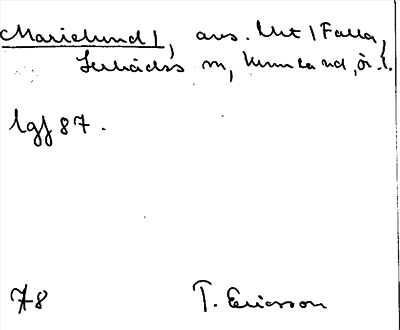 Marielund 1, avs. Mt 1 Falla,
Lerbäcks sn, Kumla hd, ör. l.
lgf 87.
78 T. Ericsson